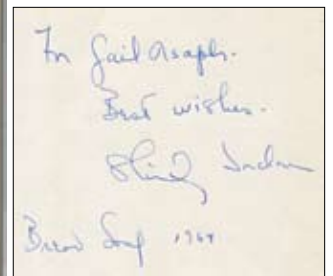 For Gail Asaph.
Best wishes.
Shirley Jackson
Bread Loaf 1964